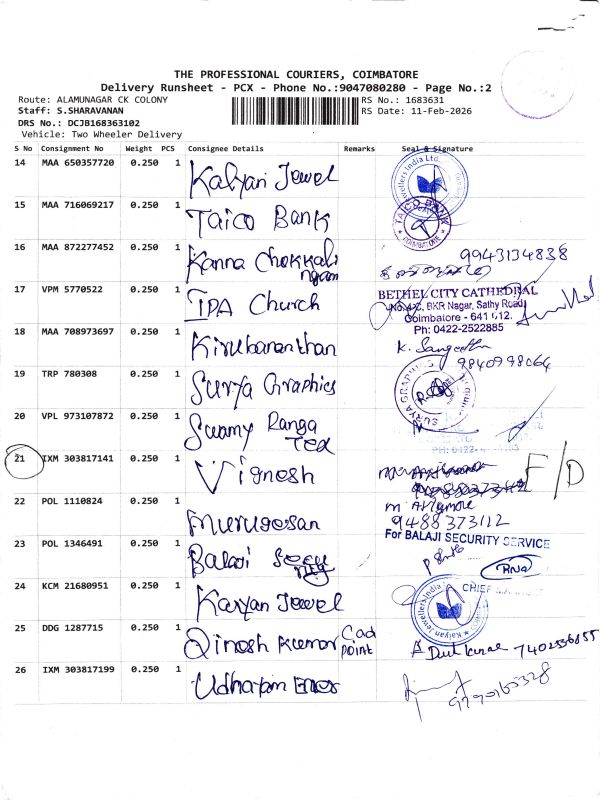 THE PROFESSIONAL COURIERS, COIMBATORE
Delivery Runsheet - PCX - Phone No.:9047080280 - Page No.:2
Route: ALAMUNAGAR CK COLONY
RS No.: 1683631
Staff: S.SHARAVANAN
RS Date: 11-Feb-2026
DRS No.: DCJB168363102
Vehicle: Two Wheeler Delivery
S No Consignment No Weight PCS Consignee Details Remarks Seal & Signature
14 MAA 650357720 0.250 1 Kalyan Jewel
15 MAA 716069217 0.250 1 Taico Bank TAICO BANK COIMBATORE
16 MAA 872277452 0.250 1 Kanna Chokkalingam 9943134838
17 VPM 5770522 0.250 1 IPA Church
BETHEL CITY CATHEDRAL
BKR Nagar, Sathy Road
Coimbatore - 641 012.
Ph: 0422-2522885
18 MAA 708973697 0.250 1 Kirubananthan K. Sangeetha
9840998064
19 TRP 780308 0.250 1 Surya Graphics SURYA GRAPHICS
20 VPL 973107872 0.250 1 Swamy Ranga Tex
21 IXM 303817141 0.250 1 Vignesh F/D
22 POL 1110824 0.250 1 Murugesan
9488373112
23 POL 1346491 0.250 1 Balaji
For BALAJI SECURITY SERVICE
24 KCM 21680951 0.250 1 Kalyan Jewel Kalyan Jewellers India
25 DDG 1287715 0.250 1 Dinesh Kumar Cad point
26 IXM 303817199 0.250 1
9790165328